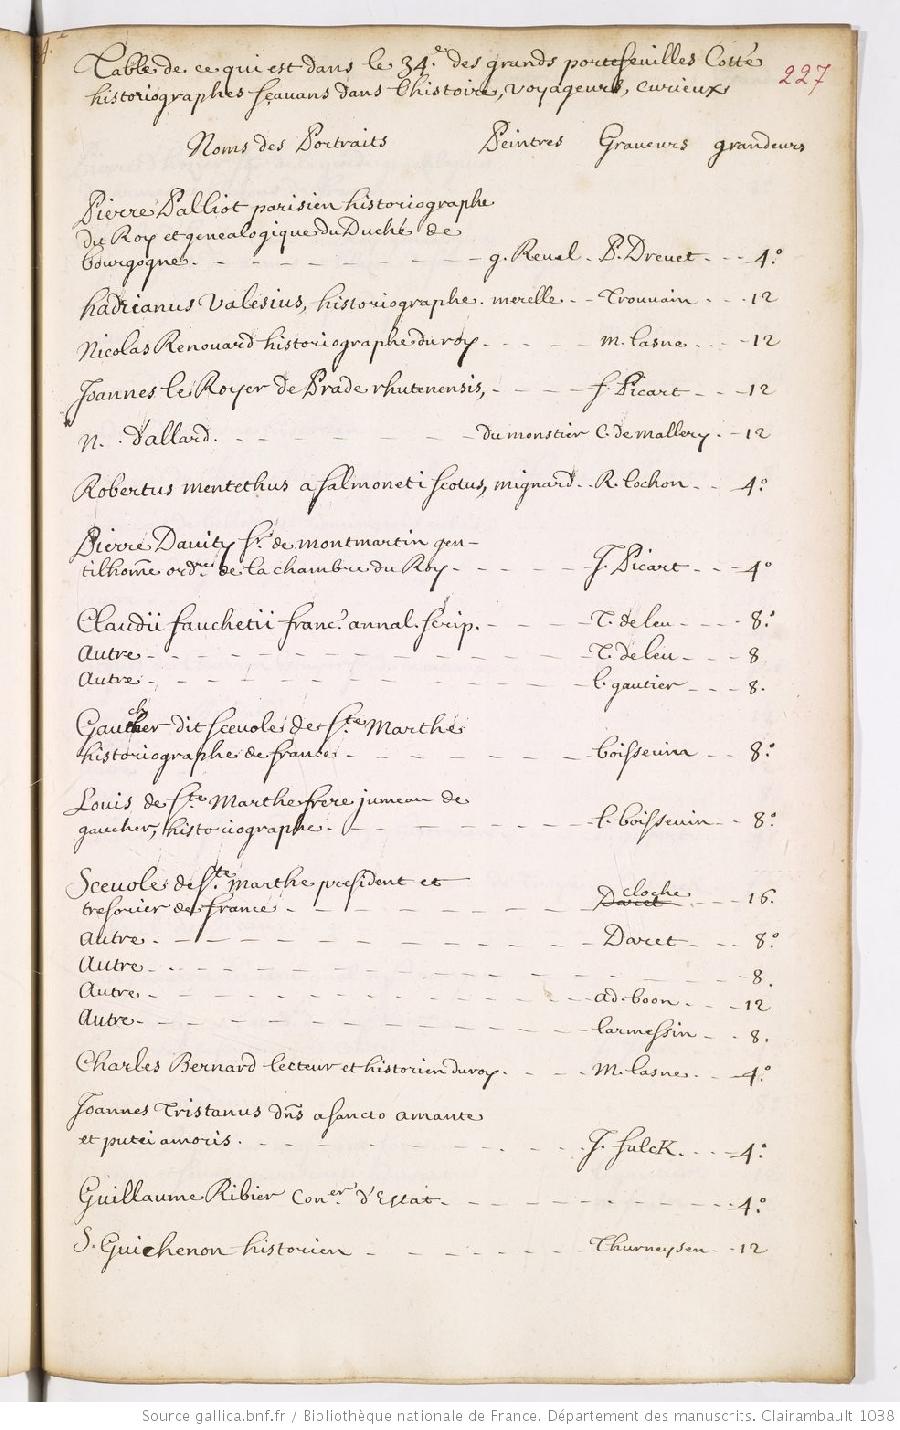 Table de ce qui est dans le 34.e des grands portefeuilles Cotté
historiographes sçauans dans l'histoire, voyageurs, curieux
227
Noms des Portraits Peintres Graueurs grandeurs
Pierre Palliot parisien historiographe
du Roy et genealogique du Duché de
bourgogne. - - - - - - g. Reuel - P. Dreuet - - - 4.°
hadrianus Valesius, historiographe. merelle - - Trouuain - - - 12
Nicolas Renouard historiographe du roy - - - - - m. lasne - - - 12
Joannes le Royer de Prade rhutenensis, - - - - f. Picart - - - 12
N. . d'allard. - - - - - - - du monstier C. de mallery. - - 12
Robertus mentethus a salmoneti scotus, mignard - - R. lochon - - 4.°
Pierre Dauity Sr. de montmartin gen-
tilhom̃e ordre. de la chambre du Roy - - - - - J. Picart - - - 4°
Claudii fauchetii franc.s annal. scrip. - - - - - T. de leu - - - - 8.°
Autre - - - - - - - - - - T. de leu - - - 8
Autre - - - - - - - - - - l. gautier - - - 8.
Gaucher dit sceuole de Ste. Marthe
historiographe de france - - - - - - - boisseuin - - 8.°
Louis de Ste. Marthe frere jumeau de
gaucher, historiographe. - - - - - - - l. boisseuin - - 8.°
Sceuole de Ste. marthe president et
tresorier de france - - - - - - - - Daret cloche - - - 16.
Autre - - - - - - - - - - Daret - - - 8.°
Autre - - - - - - - - - - - - 8.
Autre - - - - - - - - - - ad. boon - - - 12
Autre - - - - - - - - - - larmessin - - 8.
Charles Bernard lecteur et historien du roy - - - - M. lasne - - - 4.°
Joannes Tristanus dn̄s a sancto amante
et putei amoris. - - - - - - - - J. falck. - - - 4.°
Guillaume Ribier Coner. d'Estat - - - - - - - - - - 4.°
S. Guichenon historien - - - - - - - Thurneysen - - 12
Source gallica.bnf.fr / Bibliothèque nationale de France. Département des manuscrits. Clairambault 1038